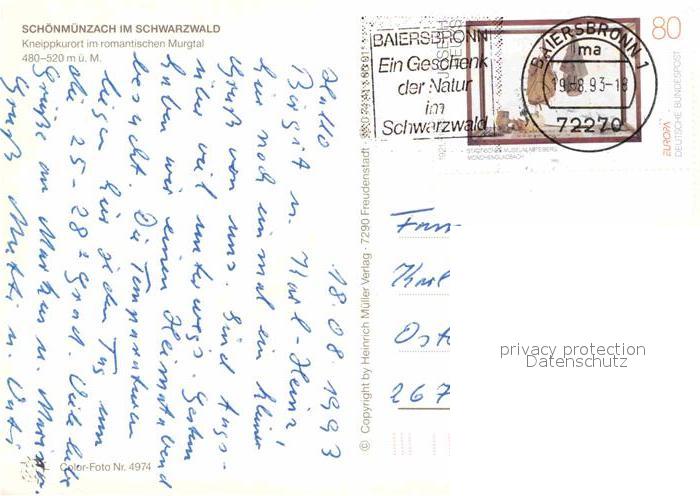 SCHÖNMÜNZACH IM SCHWARZWALD
Kneippkurort im romantischen Murgtal
480–520 m ü. M.
18.08.1993
Hallo
Birgit u. Karl-Heinz!
hier noch einmal ein kleiner
Gruß von uns. Sind tags-
über viel unterwegs. Gestern
haben wir einen Heimatabend
besucht. Die Temperaturen
liegen hier jeden Tag um
die 25-28° Grad. Viele liebe
Grüße an Markus u.
Gruß Mutti u. Vati
Color-Foto Nr. 4974
© Copyright by Heinrich Müller Verlag · 7290 Freudenstadt ·
BAIERSBRONN
Ein Geschenk
der Natur
im
Schwarzwald
BAIERSBRONN 1
ma
19.-8.93-18
72270
80
DEUTSCHE BUNDESPOST
EUROPA
MÖNCHENGLADBACH
Fam
Karl
Ost
267
privacy protection
Datenschutz